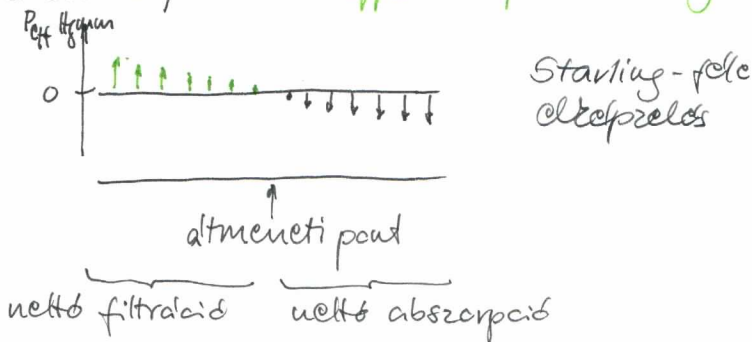 Peff Hgmm
0
Starling-féle
elképzelés
átmeneti pont
nettó filtráció nettó abszorpció